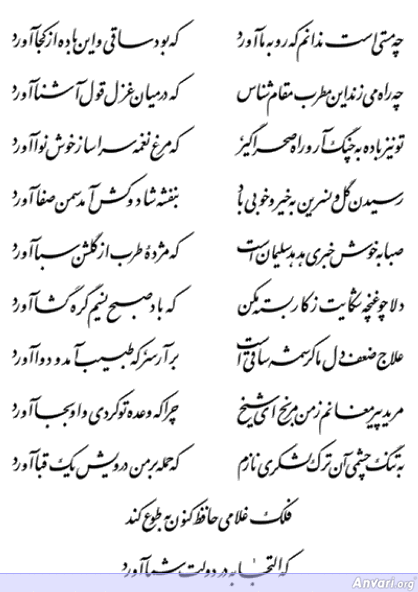 چه مستی است ندانم که رو به ما آورد که بود ساقی و این باده از کجا آورد
چه راه می‌زند این مطرب مقام شناس که در میان غزل قول آشنا آورد
تو نیز باده به چنگ آر و راه صحرا گیر که مرغ نغمه سرا ساز خوش نوا آورد
رسیدن گل و نسرین به خیر و خوبی باد بنفشه شاد و کش آمد سمن صفا آورد
صبا به خوش خبری هدهد سلیمان است که مژدهٔ طرب از گلشن سبا آورد
دلا چو غنچه شکایت ز کار بسته مکن که باد صبح نسیم گره گشا آورد
علاج ضعف دل ما کرشمه ساقی است برآر سر که طبیب آمد و دوا آورد
مرید پیر مغانم ز من مرنج ای شیخ چرا که وعده تو کردی و او بجا آورد
به تنگ چشمی آن ترک لشکری نازم که حمله بر من درویش یک قبا آورد
فلک غلامی حافظ کنون به طوع کند
که التجا به در دولت شما آورد
Anvari.org